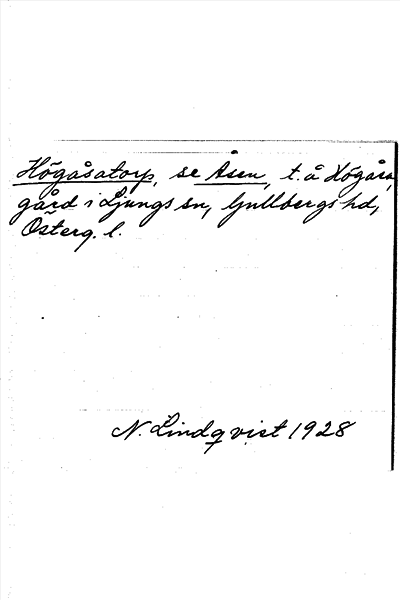 Högåsatorp, se Åsen, t. å Högåsa,
gård i Ljungs sn, Gullbergs hd,
Österg. l.
N. Lindqvist 1928